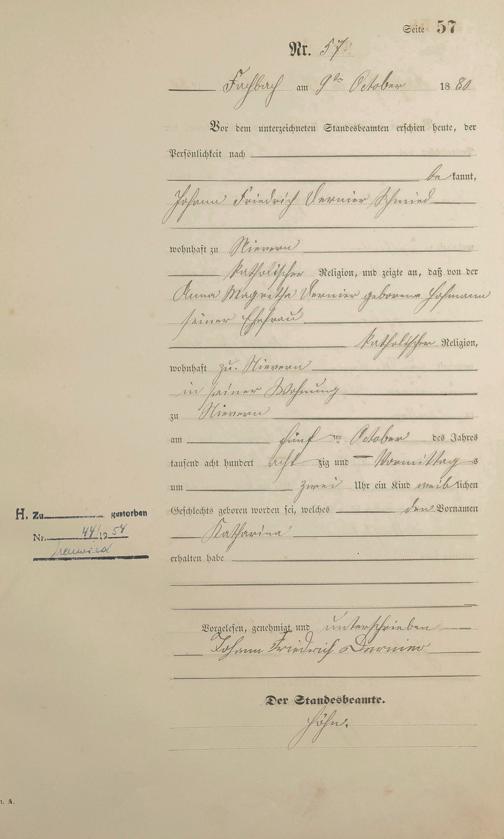 Seite 57
Nr. 57.
Fachbach am 9ten October 1880
Vor dem unterzeichneten Standesbeamten erschien heute, der
Persönlichkeit nach
be kannt,
Johann Friedrich Dernier Schmied
wohnhaft zu Nievern
katholischer Religion, und zeigte an, daß von der
Anna Magretha Dernier geborene Hofmann
seiner Ehefrau
katholischer Religion,
wohnhaft zu Nievern
in seiner Wohnung
zu Nievern
am fünf ten October des Jahres
tausend acht hundert acht zig und — Vormittag s
um zwei Uhr ein Kind weib lichen
H. Zu gestorben
Geschlechts geboren worden sei, welches den Vornamen
Nr. 44/1954
Katharina
Neuwied
erhalten habe
Vorgelesen, genehmigt und unterschrieben
Johann Friedrich Dernier
Der Standesbeamte.
Höhn.
A.